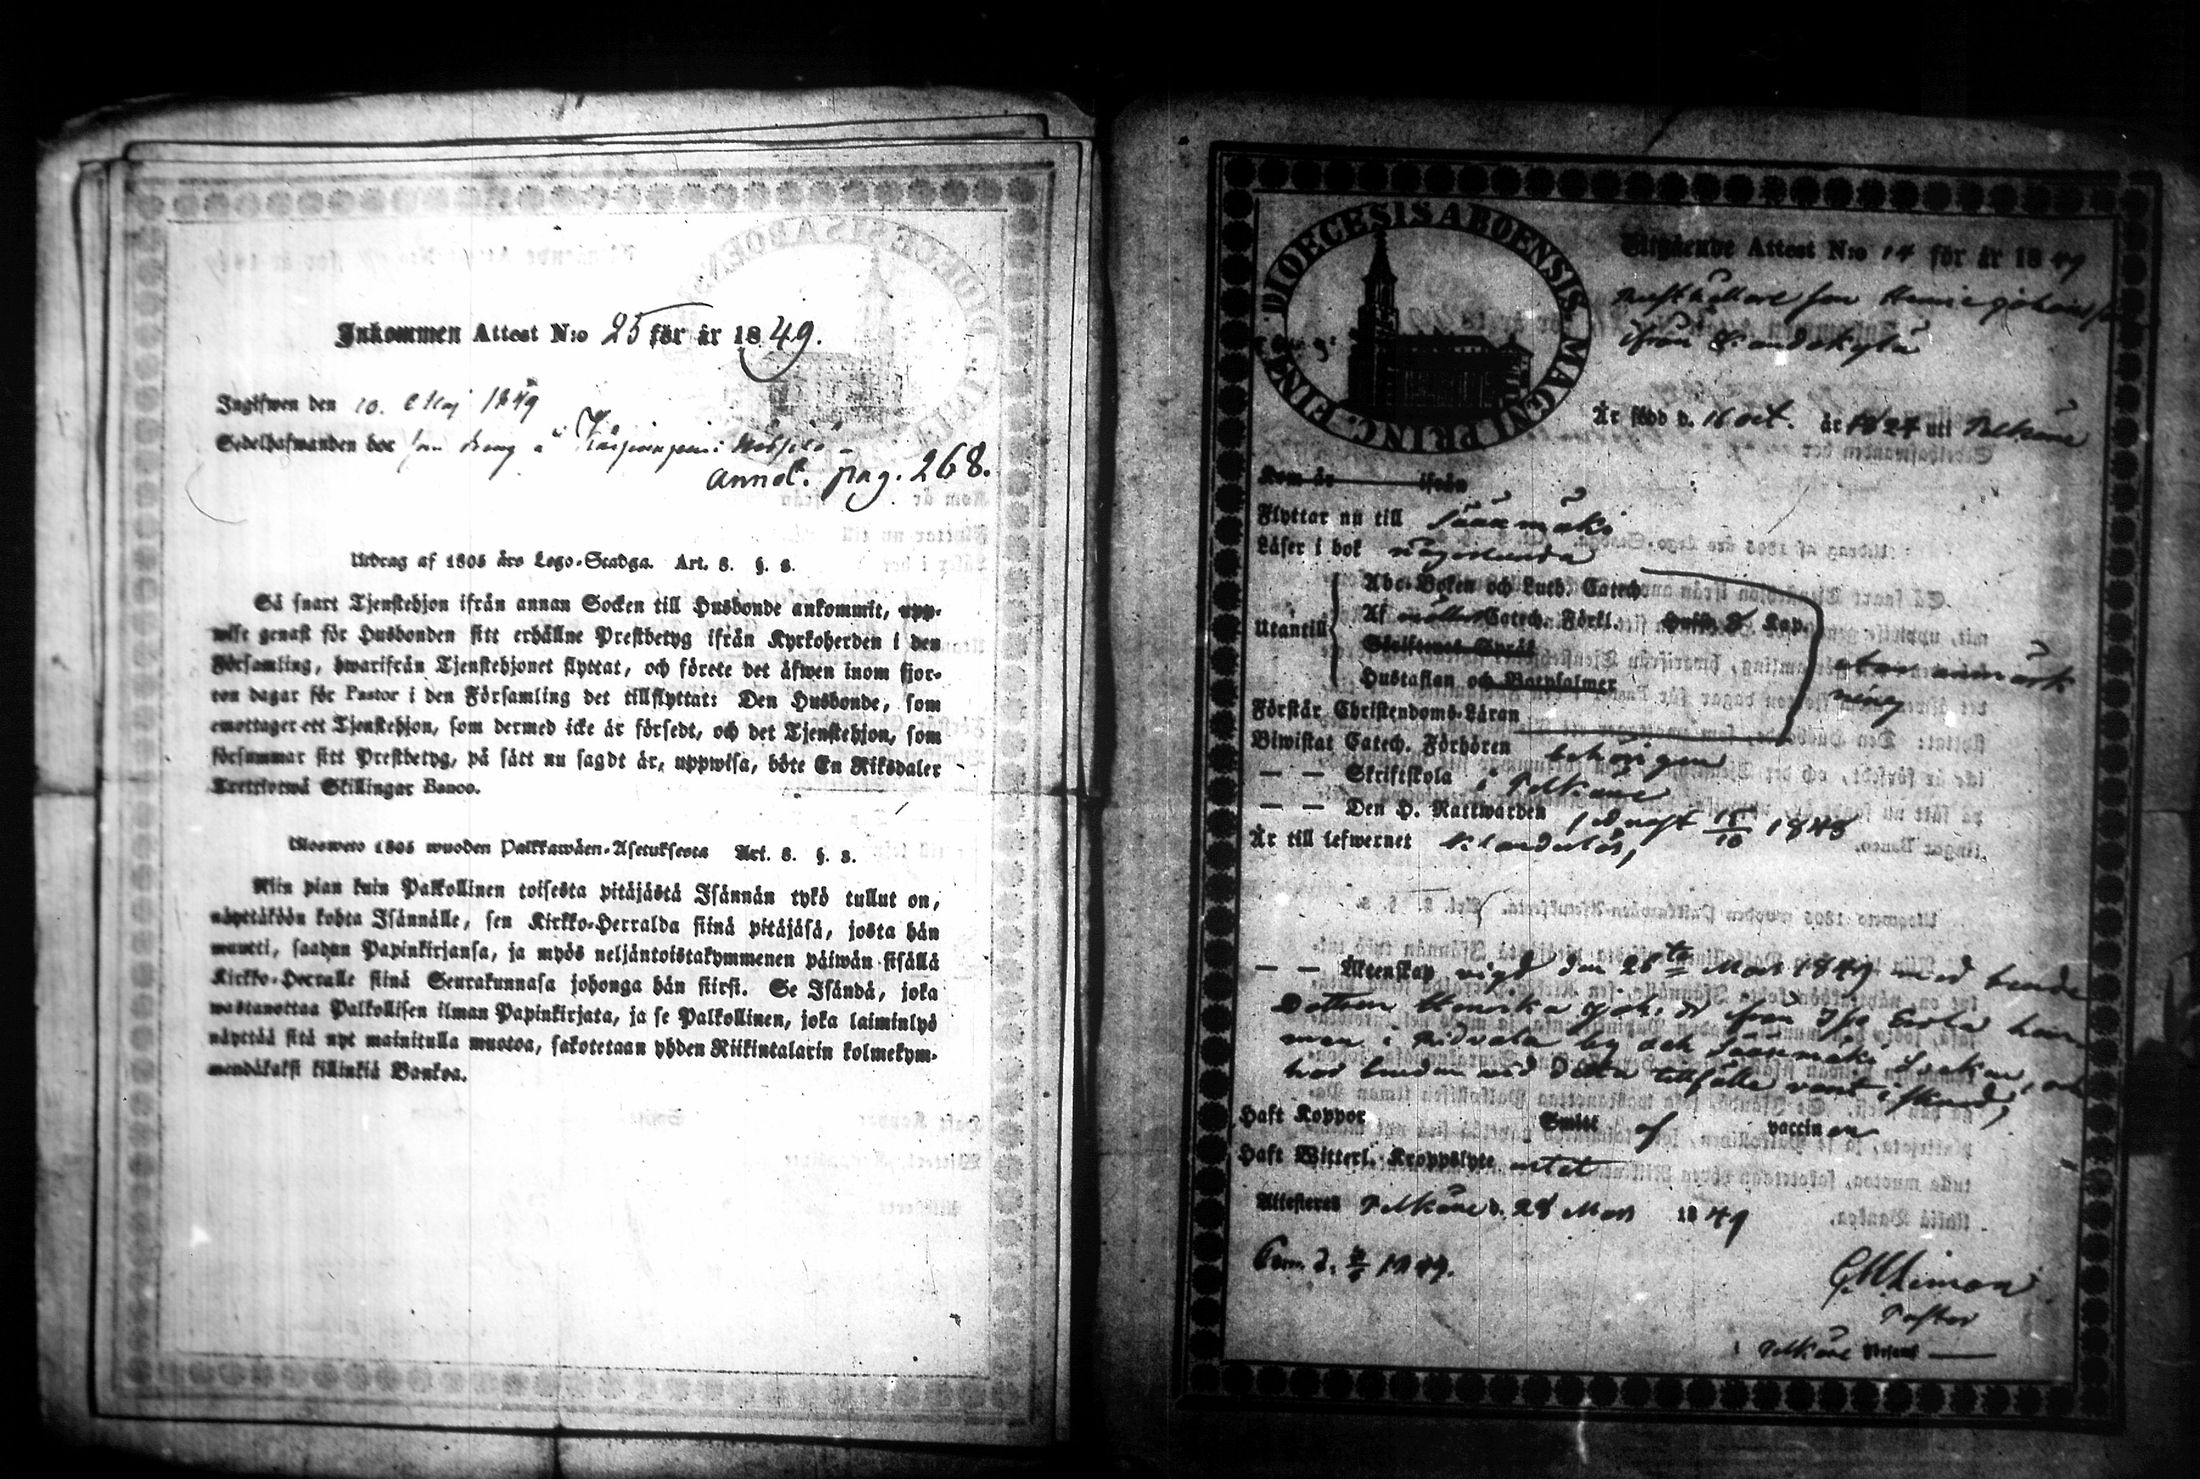 Inkommen Attest N:o 25 för år 1849.
Ingifwen den 10. Maj 1849
Sedelhafwanden bor som dräng å
annot. pag. 268.
Utdrag af 1805 års Lego-Stadga. Art. 8. §. 8.
Så snart Tjenstehjon ifrån annan Socken till Husbonde ankommit, upp-
wise genast för Husbonden sitt erhållne Prestbetyg ifrån Kyrkoherden i den
Församling, hwarifrån Tjenstehjonet flyttat, och förete det äfwen inom fjor-
ton dagar för Pastor i den Församling det tillflyttat: Den Husbonde, som
emottager ett Tjenstehjon, som dermed icke är försedt, och det Tjenstehjon, som
försummar sitt Prestbetyg, på sätt nu sagdt är, uppwisa, böte En Riksdaler
Trettiotwå Skillingar Banco.
Ulosweto 1805 wuoden Palkkawäen-Asetuksesta Art. 8. §. 8.
Niin pian kuin Palkollinen toisesta pitäjästä Isännän tykö tullut on,
näyttäköön kohta Isännälle, sen Kirkko-Herralda siinä pitäjäsä, josta hän
muutti, saadun Papinkirjansa, ja myös neljäntoistakymmenen päiwän sisällä
Kirkko-Herralle siinä Seurakunnasa johonga hän siirsi. Se Isändä, joka
wastanottaa Palkollisen ilman Papinkirjata, ja se Palkollinen, joka laiminlyö
näyttää sitä nyt mainitulla muotoa, sakotetaan yhden Riikintalarin kolmekym-
mendäkaksi killinkiä Bankoa.
DIOECESIS ABOENSIS MAGNI PRINC. FINL.
Utgående Attest N:o 14 för år 1849
ifrån
Är född d. 16 oct. år 1824 uti Pelkäne
Kom år ifrån
Flyttar nu till Sääxmäki
Läser i bok någorlunda
Utantill
Abc-Boken och Luth. Catech.
Af Catech. Förkl. Kap.
Skriftenes Språk
Hustaflan och Botpsalmer
utan anmärk
ning
Förstår Christendoms-Läran
Biwistat Catech. Förhören behörigen
— — Skriftskola i Pelkäne
— — Den H. Nattwarden sednast 15/10 1848
Är till lefwernet klanderlös,
— — Äktenskap vigd den 26te Mars 1849 med bonde
Dottren ifrån
man i Ridvala by och Sääxmäki Socken, och
har bruden vid detta tillfälle varit
Haft Koppor Smitt af vaccinen
Haft Witterl. Kroppslyte intet
Attesteras Pelkäne d. 28 Mars 1849
1849.
Pastor
i Pelkäne